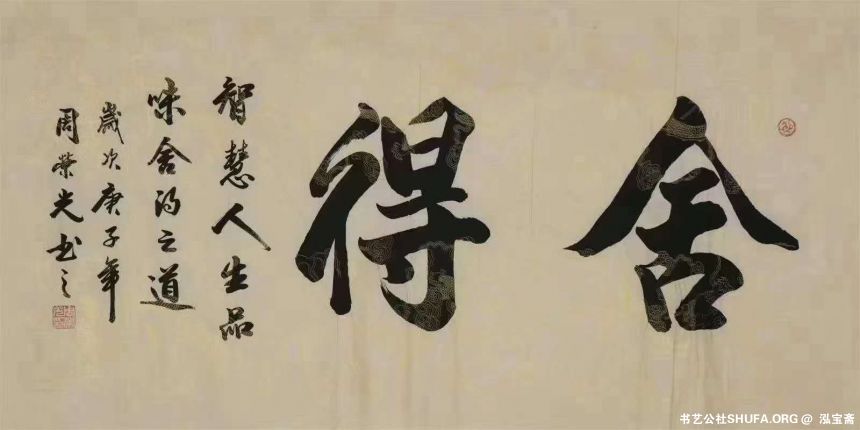 舍得
智慧人生品
味舍得之道
歲次庚子年
周榮光书之
书艺公社SHUFA.ORG @ 泓宝斋